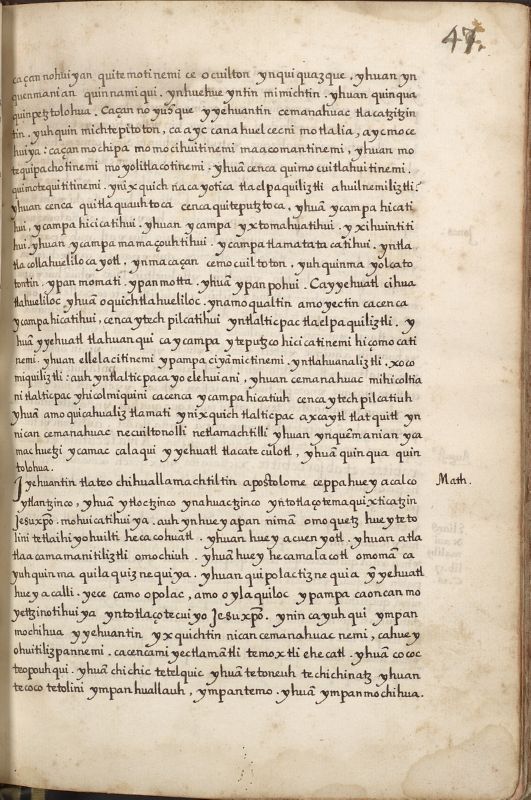 47.
caçan nohuiyan quitemotinemi ce ocuilton ynquiquazque. yhuan yn
quenmanian quinnamiqui. ynhuehueyntin mimichtin. yhuan quinqua
quinpetztolohua. Caçan no yuhque yyehuantin cemanahuac tlacatzitzin
tin. yuhquin michtepitoton, ca ayc canahuel cecni motlalia, aycmoce
huiya: caçan mochipa momocihuitinemi maacomantinemi, yhuan mo
tzquipachotinemi moyolitlacotinemi. yhuā cenca quimocuitlahuitinemi.
quimotequititinemi. ynixquich nacayotica tlaelpaquiliztli ahuilnemiliztli:
yhuan cenca quitlaquauhtoca cenca quiteputztoca. yhuā ycampa hicati
hui, ycampa hicicatihui. yhuan ycampa yxtomahuatihui. yxihuintiti
hui. yhuan ycampa mamaçouhtihui. ycampa tlamatatacatihui. yntla
tlacollahuelilocayotl. ynmacaçan cemocuiltoton. yuhquinma yolcato
tontin. ypan momati. ypan motta. yhuā ypan pohui. Cayyehuatl cihua
tlahueliloc yhuā oquichtlahueliloc. ynamoqualtin amo yectin cacenca
ycampa hicatihui, cenca ytech pilcatihui yntlalticpac tlaelpaquiliztli. y
huā yyehuatl tlahuanqui ca ycampa yteputzco hicicatinemi hiçomocati
nemi. yhuan ellelacitinemi ypampa ciyāmictinemi. yntlahuanaliztli. xoco
miquiliztli: auh yntlalticpacayo elehuiani, yhuan cemanahuac mihicoltia
ni tlalticpac yhicolmiquini cacenca ycampa hicatiuh cenca ytech pilcatiuh
yhuā amo quicahualiztlamati ynixquich tlalticpac axcaytl tlatquitl yn
nican cemanahuac necuiltonolli netlamachtilli yhuan ynquēmanian yca
machuetzi ycamac calaqui yyehuatl tlacateculotl, yhuā quinqua quin
tolohua.
Jyehuantin tlateochihuallamachtiltin apostolome ceppa huey acalco Math.
ytlantzinco, yhuā ytloctzinco ynahuactzinco yntotlaçotemaquixticatzin
Jesuxp̄o. mohuicatihuiya. auh ynhueyapan nimā omoquetz hueyteto
lini tetlaihiyohuilti hecacohuatl. yhuan huey acuenyotl. yhuan atla
tlaacamamanitiliztli omochiuh. yhuā huey hecamalacotl omomā ca
yuhquinma quilaquiznequiya. yhuan quipolactiznequia ȳyehuatl
huey acalli. yece camo opolac, amo oylaquiloc ypampa caoncan mo
yetztzinotihuiya yntotlaçotecuiyo Jesuxp̄o. ynin ca yuhqui ympan
mochihua yyehuantin yxquichtin nican cemanahuac nemi, cahuey
ohuitilizpannemi. cacencami yectlamātli temoxtli ehecatl. yhuā cococ
teopouhqui. yhuā chichic tetelquic yhuā tetoneuh techichinatz yhuan
tecoco tetolini ympan huallauh, ympantemo. yhuā ympan mochihua.